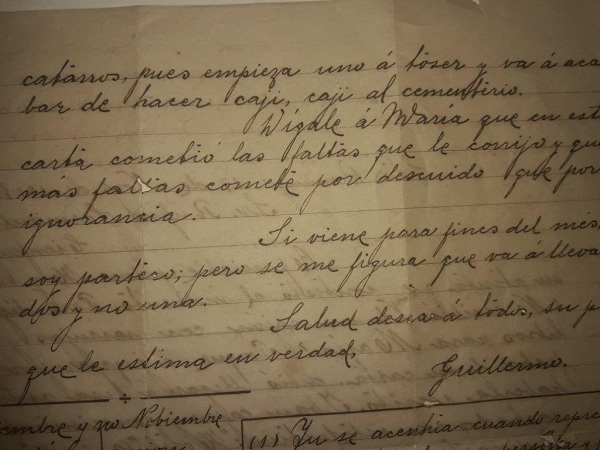 catarros, pues empieza uno á toser y va á aca
bar de hacer caji, caji al cementerio.
Dígale á María que en est
carta cometió las faltas que le corrijo y que
más faltas comete por descuido que por
ignorancia.
Si viene para fines del mes,
soy parteco; pero se me figura que va á lleva
dos y no una.
Salud desea á todos, su p
que le estima en verdad,
Guillermo.
ombre y no Nobiembre
(1) Tu se acentúa cuando repre